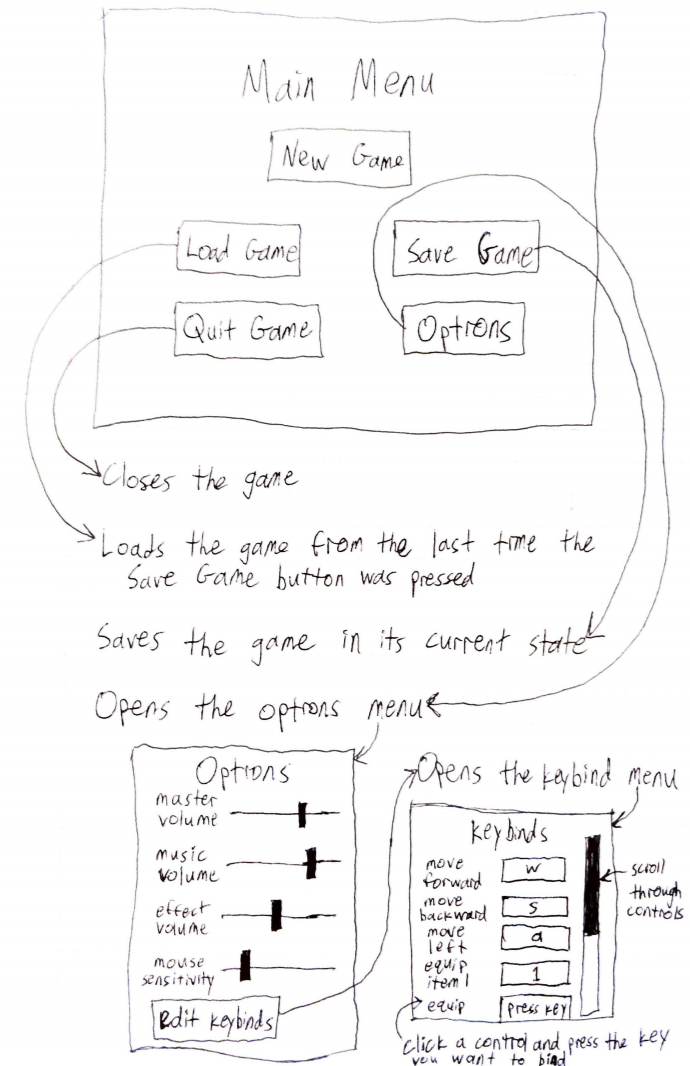 Main Menu
New Game
Load Game
Save Game
Quit Game
Options
Closes the game
Loads the game from the last time the
Save Game button was pressed
Saves the game in its current state
Opens the options menu
Options
master
volume
music
volume
effect
volume
mouse
sensitivity
Edit keybinds
Opens the keybind menu
keybinds
move
forward
w
move
backward
s
move
left
a
equip
item 1
1
equip
press key
scroll
through
controls
click a control and press the key
you want to bind